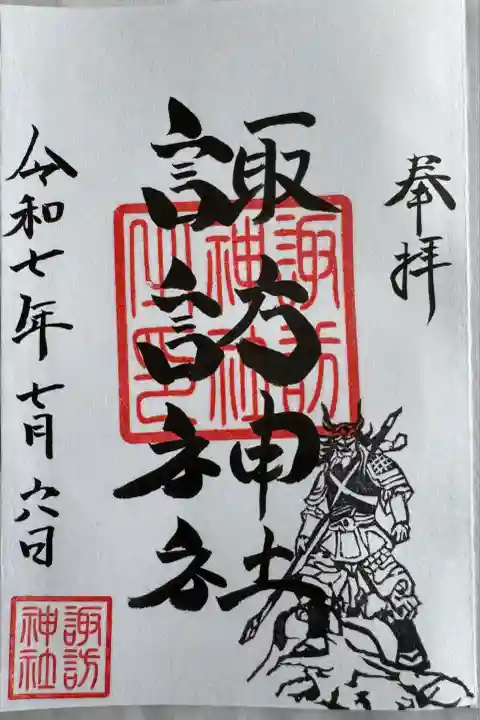 奉拝
諏訪神社
諏訪神社之印
令和七年七月六日
諏訪神社